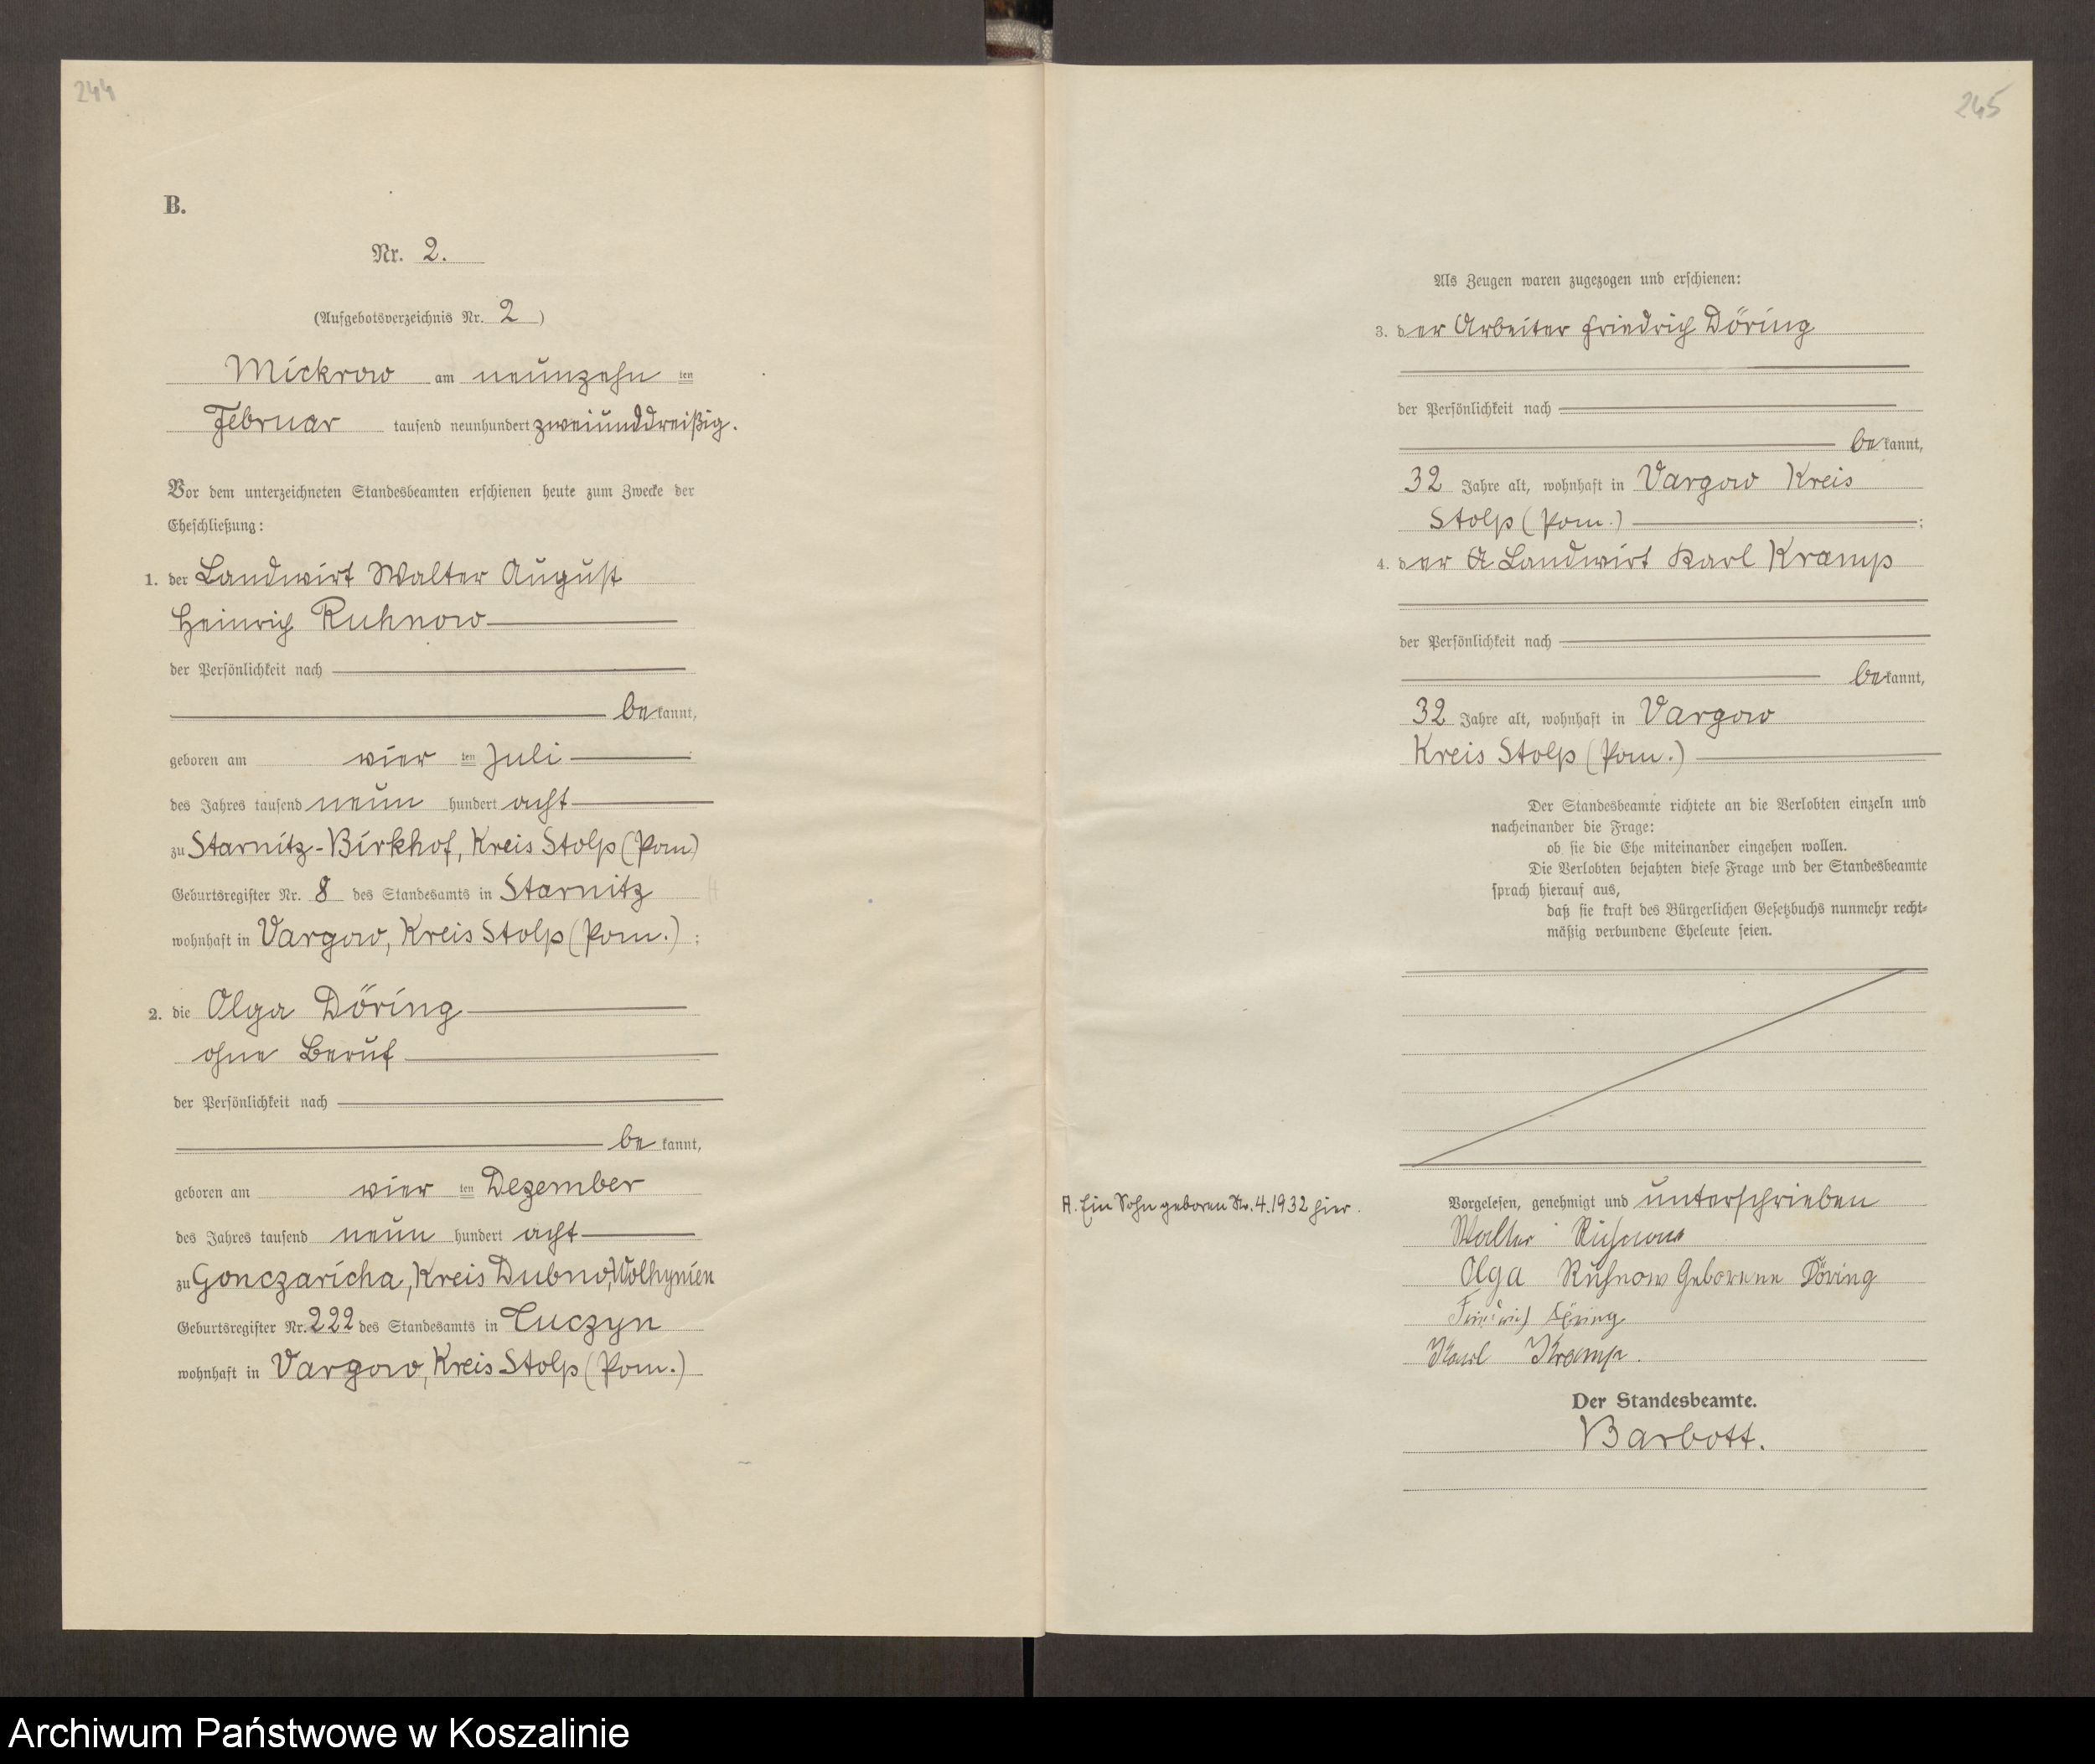 244
B.
Nr. 2.
(Aufgebotsverzeichnis Nr. 2)
Mickrow am neunzehn ten
Februar tausend neunhundert zweiunddreißig.
Vor dem unterzeichneten Standesbeamten erschienen heute zum Zwecke der
Eheschließung:
1. der Landwirt Walter August
Heinrich Ruhnow
der Persönlichkeit nach
bekannt,
geboren am vier ten Juli
des Jahres tausend neun hundert acht
zu Starnitz-Birkhof, Kreis Stolp (Pom)
Geburtsregister Nr. 8 des Standesamts in Starnitz
wohnhaft in Vargow, Kreis Stolp (Pom.);
2. die Olga Döring
ohne Beruf
der Persönlichkeit nach
bekannt,
geboren am vier ten Dezember
des Jahres tausend neun hundert acht
zu Gonczaricha, Kreis Dubno, Wolhynien
Geburtsregister Nr. 222 des Standesamts in Tuczyn
wohnhaft in Vargow, Kreis Stolp (Pom.)
245
Als Zeugen waren zugezogen und erschienen:
3. der Arbeiter Friedrich Döring
der Persönlichkeit nach
bekannt,
32 Jahre alt, wohnhaft in Vargow Kreis
Stolp (Pom.);
4. der A Landwirt Karl Kramp
der Persönlichkeit nach
bekannt,
32 Jahre alt, wohnhaft in Vargow
Kreis Stolp (Pom.)
Der Standesbeamte richtete an die Verlobten einzeln und
nacheinander die Frage:
ob sie die Ehe miteinander eingehen wollen.
Die Verlobten bejahten diese Frage und der Standesbeamte
sprach hierauf aus,
daß sie kraft des Bürgerlichen Gesetzbuchs nunmehr recht-
mäßig verbundene Eheleute seien.
A. Ein Sohn geboren Nr. 4.1932 hier.
Vorgelesen, genehmigt und unterschrieben
Walter Ruhnow
Olga Ruhnow Geborene Döring
Friedrich Döring
Karl Kramp.
Der Standesbeamte.
Barbott.
Archiwum Państwowe w Koszalinie